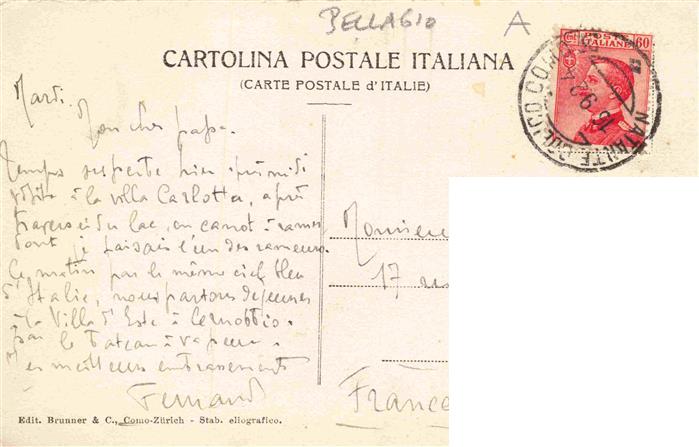 BELLAGIO A
CARTOLINA POSTALE ITALIANA
(CARTE POSTALE d'ITALIE)
POSTE
ITALIANE 60
NATANTE COLICO COMO
Mardi.
Mon cher papa.
Temps superbe hier après midi
visite à la villa Carlotta, après
traversée du lac, en canot à rames
dont je faisais l'un des rameurs.
Ce matin par le même ciel bleu
d'Italie, nous partons déjeuner
à la Villa d'Este à Cernobbio.
par le bateau à vapeur.
Mes meilleurs embrassements
Fernand
Monsieu
17
France
Edit. Brunner & C., Como-Zürich - Stab. eliografico.